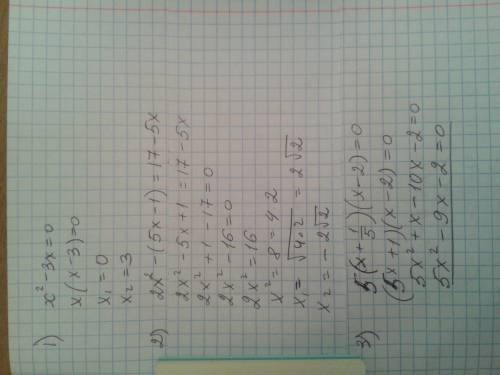 1) x² - 3x = 0
x(x-3) = 0
x₁ = 0
x₂ = 3
2) 2x² - (5x - 1) = 17 - 5x
2x² - 5x + 1 = 17 - 5x
2x² + 1 - 17 = 0
2x² - 16 = 0
2x² = 16
x² = 8 = 4·2
x₁ = √4·2 = 2√2
x₂ = -2√2
3) 5(x + 1/5)(x - 2) = 0
(5x + 1)(x - 2) = 0
5x² + x - 10x - 2 = 0
5x² - 9x - 2 = 0